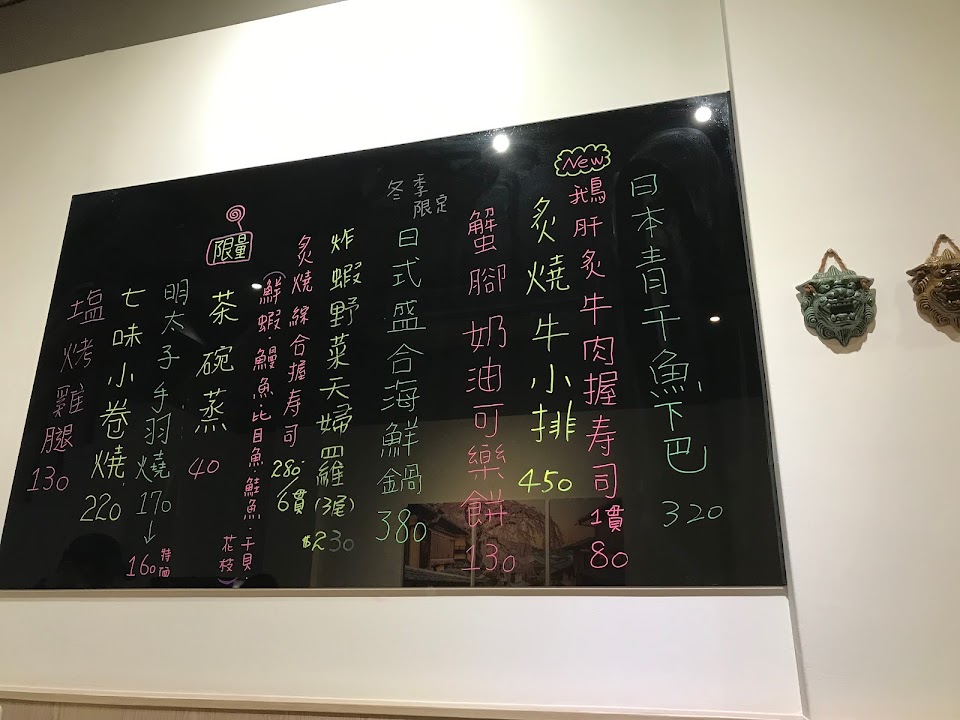 日本青干魚下巴
320
New
鵝肝炙牛肉握寿司
1貫
80
炙燒牛小排
450
蟹腳奶油可樂餅
130
冬季
限定
日式盛合海鮮鍋
380
炸蝦野菜天婦羅(3尾)
$230
炙燒綜合握寿司
280/6貫
(鮮蝦·鰻魚·比目魚·鮭魚·干貝
花枝)
限量
茶碗蒸
40
明太子手羽燒
170
↓
160
特価
七味小卷燒
220
塩烤雞腿
130